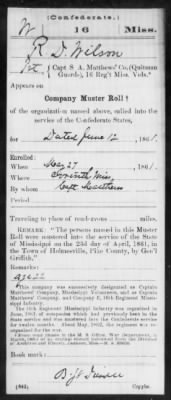 (Confederate.)
W 16 Miss.
R. D. Wilson
Pvt, Capt S. A. Matthews' Co. (Quitman
Guards), 16 Reg't Miss. Vols.*
Appears on
Company Muster Roll †
of the organization named above, called into the
service of the Confederate States,
for Dated June 12, 1861.
Enlisted:
When May 27, 1861.
Where Corinth, Miss
By whom Capt Matthews
Period
Traveling to place of rendezvous miles.
REMARK: "The persons named in this Muster
Roll were mustered into the service of the State
of Mississippi on the 23d day of April, 1861, in
the Town of Holmesville, Pike County, by Gen'l
Griffith."
Remarks:
age 22
*This company was successively designated as Captain
Matthews' Company, Mississippi Volunteers, and as Captain
Matthews' Company and Company E, 16th Regiment Mississippi
Infantry.
The 16th Regiment Mississippi Infantry was organized in
June, 1861, of companies which had previously been in the
State service and was mustered into the Confederate service for
twelve months. About May, 1862, the regiment was re-
organized for the war.
Book mark:
(642) Copyist.